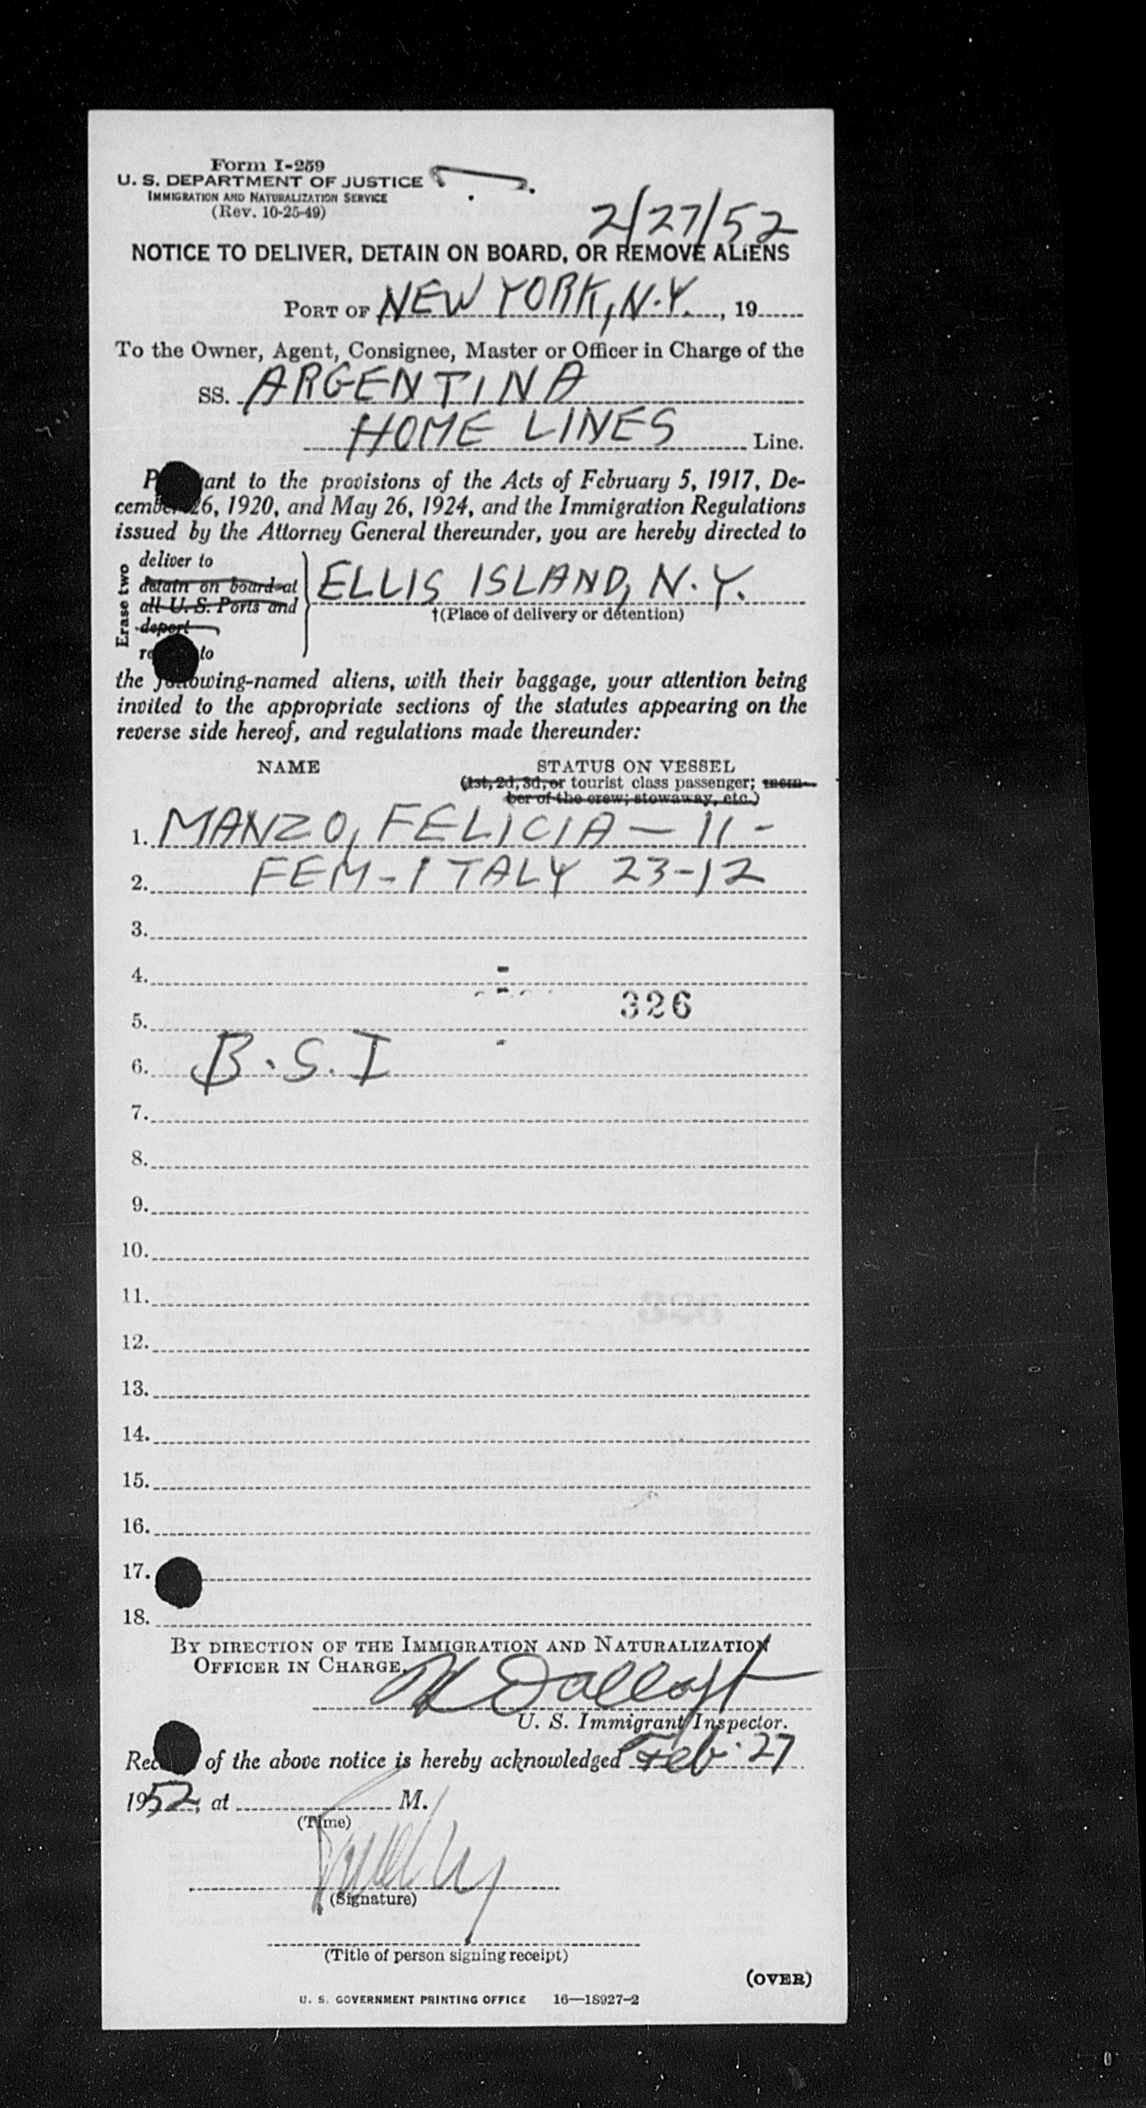 Form I-259
U. S. DEPARTMENT OF JUSTICE
IMMIGRATION AND NATURALIZATION SERVICE
(Rev. 10-25-49)
2/27/52
NOTICE TO DELIVER, DETAIN ON BOARD, OR REMOVE ALIENS
PORT OF NEW YORK, N.Y., 19
To the Owner, Agent, Consignee, Master or Officer in Charge of the
SS. ARGENTINA
HOME LINES Line.
ant to the provisions of the Acts of February 5, 1917, De-
cember 26, 1920, and May 26, 1924, and the Immigration Regulations
issued by the Attorney General thereunder, you are hereby directed to
Erase two
deliver to
detain on board at
all U. S. Ports and
deport
to
ELLIS ISLAND, N.Y.
†(Place of delivery or detention)
the following-named aliens, with their baggage, your attention being
invited to the appropriate sections of the statutes appearing on the
reverse side hereof, and regulations made thereunder:
NAME STATUS ON VESSEL
(1st, 2d, 3d, or tourist class passenger; mem-
ber of the crew; stowaway, etc.)
1. MANZO, FELICIA — 11 -
2. FEM - ITALY 23-12
3.
4.
326
5.
6. B.S.I
7.
8.
9.
10.
11.
12.
13.
14.
15.
16.
17.
18.
BY DIRECTION OF THE IMMIGRATION AND NATURALIZATION
OFFICER IN CHARGE.
U. S. Immigrant Inspector.
of the above notice is hereby acknowledged Feb. 27
1952, at M.
(Time)
(Signature)
(Title of person signing receipt)
(OVER)
U. S. GOVERNMENT PRINTING OFFICE 16—18927-2